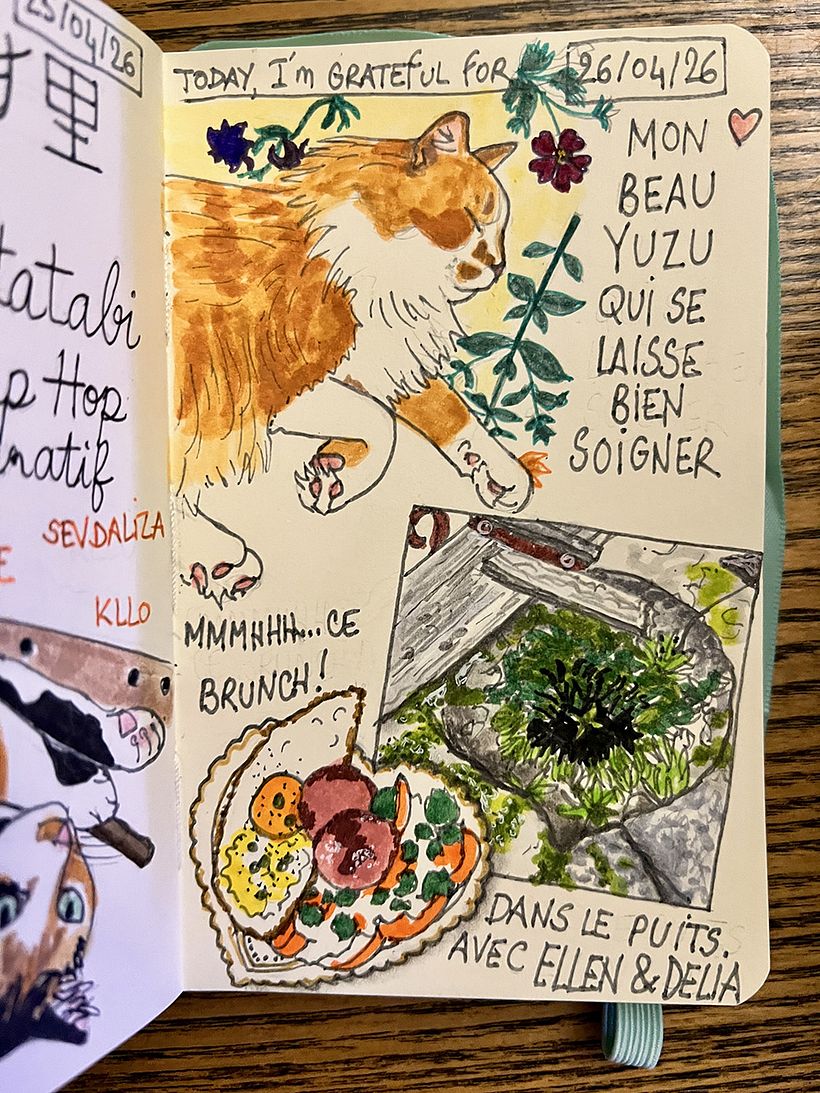 25/04/26
里
tatabi
p Hop
natif
SEVDALIZA
E
KLLO
TODAY, I'm GRATEFUL FOR
26/04/26
MON
BEAU
YUZU
QUI SE
LAISSE
BIEN
SOIGNER
MMMHHH... CE
BRUNCH!
DANS LE PUITS.
AVEC ELLEN & DELIA